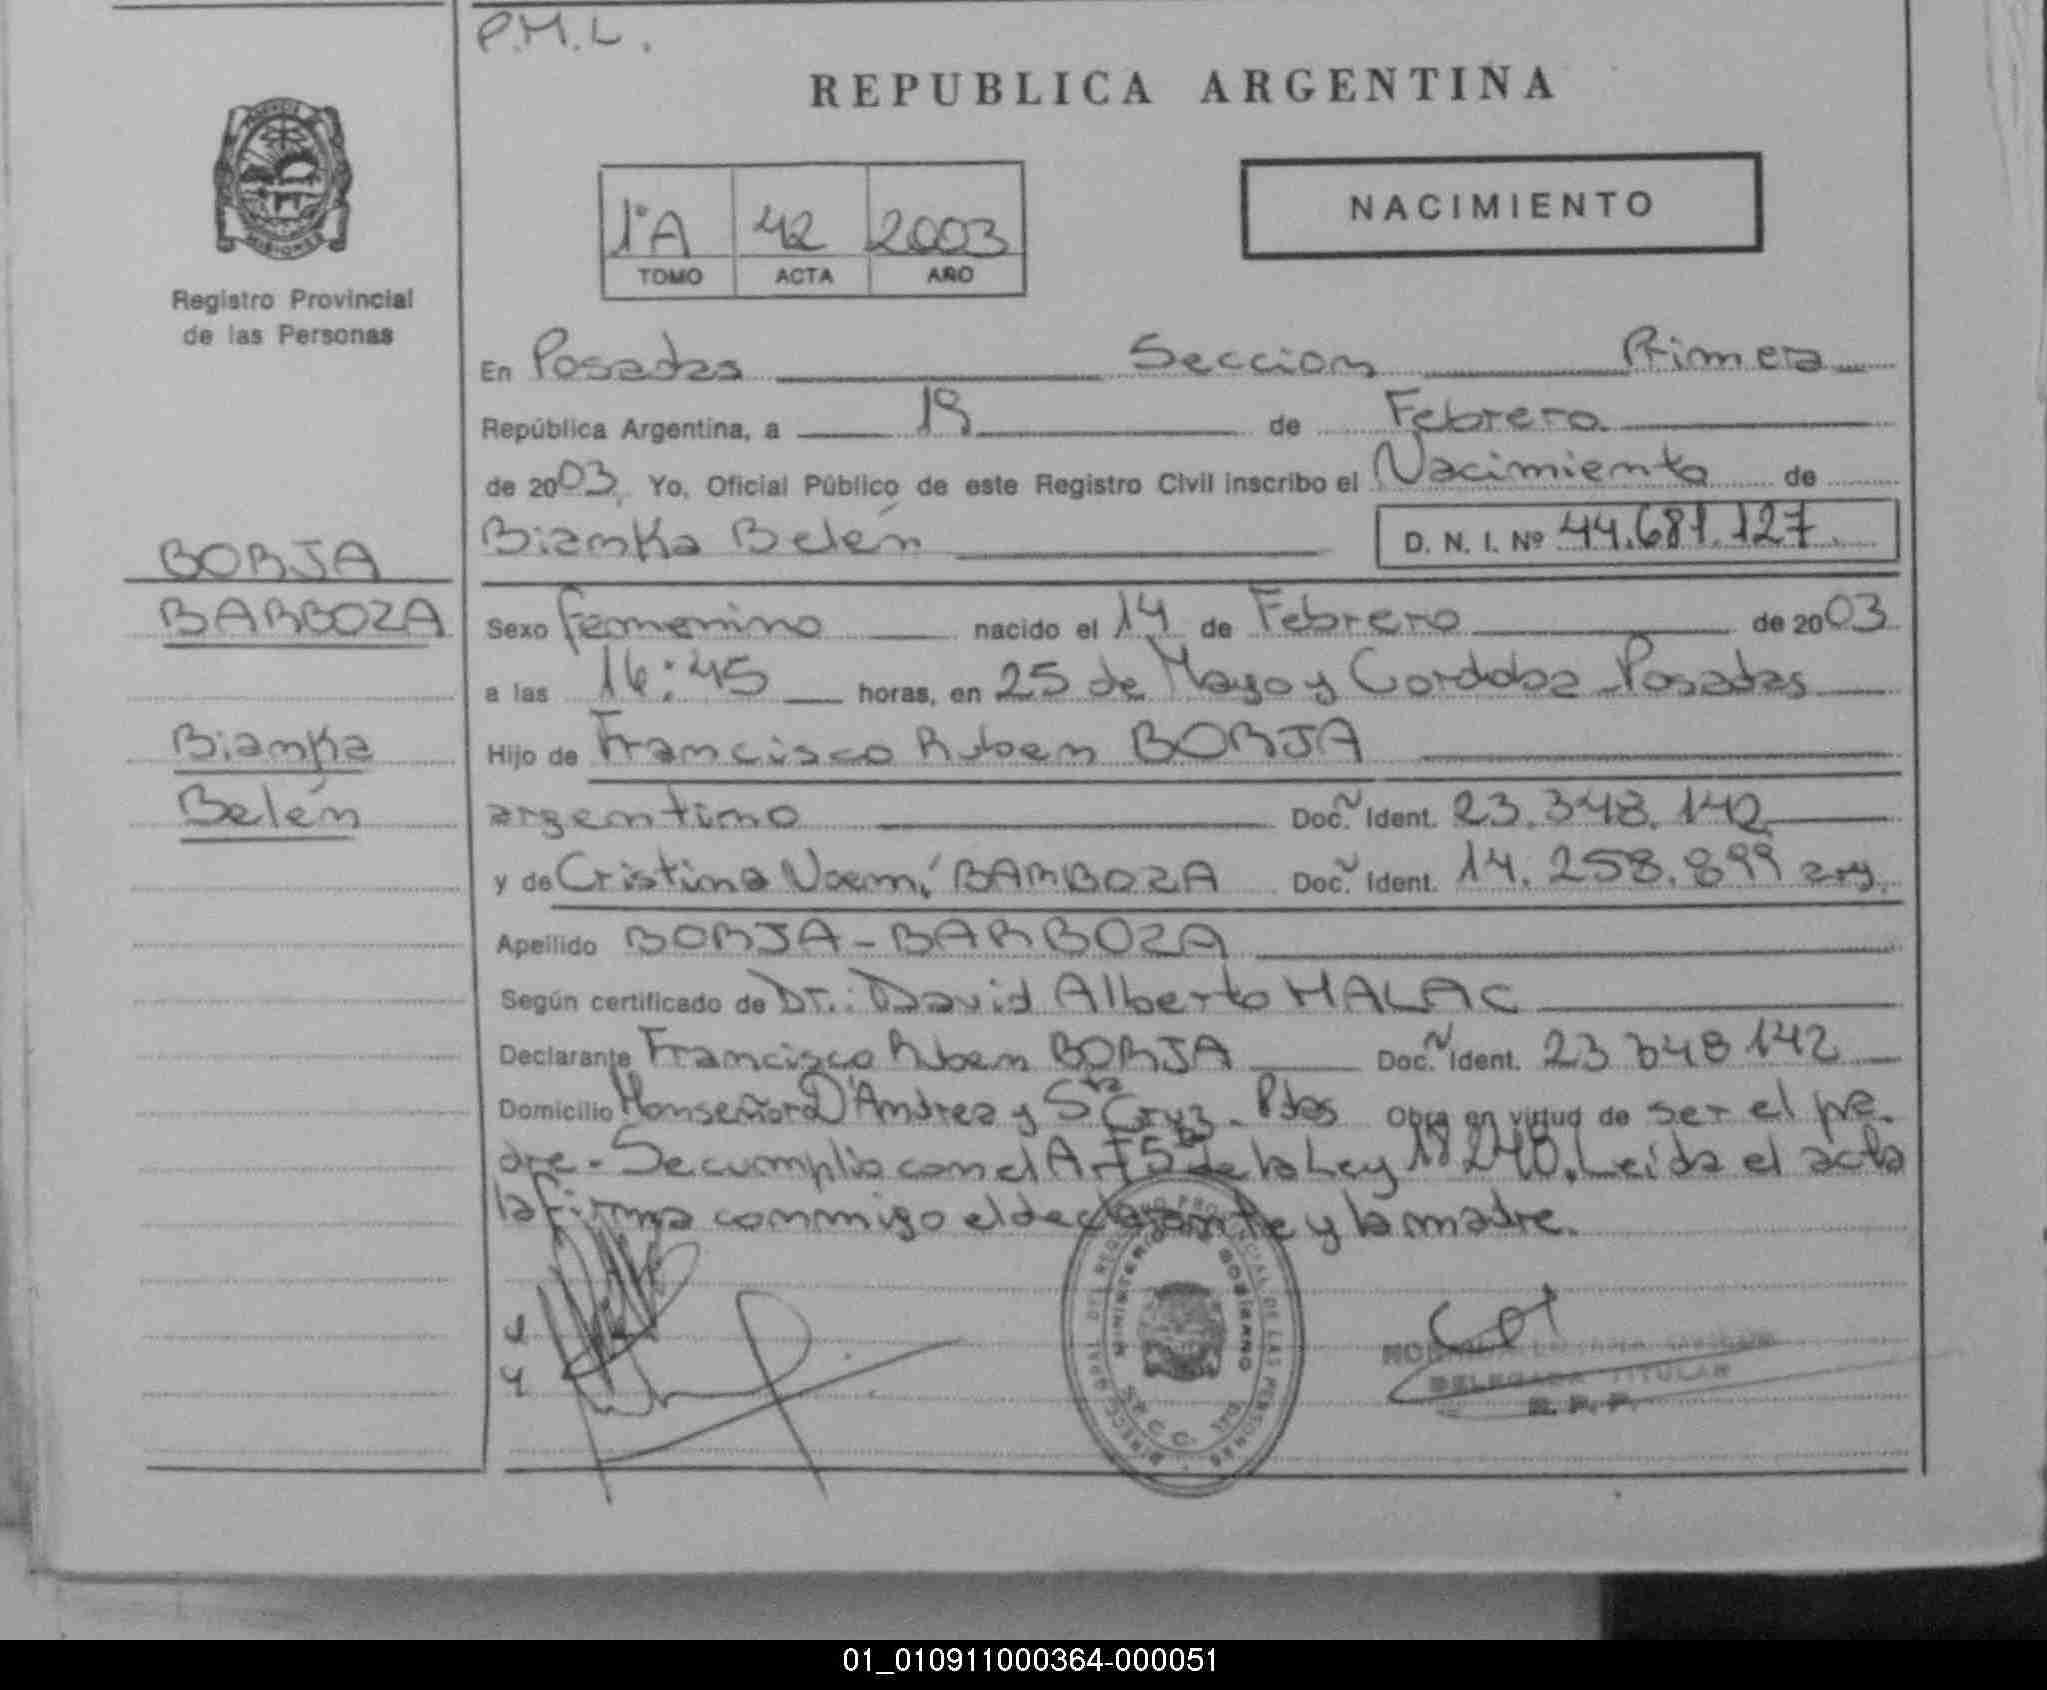 P.M.L.
REPUBLICA ARGENTINA
NACIMIENTO
1ºA 42 2003
TOMO ACTA AÑO
Registro Provincial
de las Personas
En Posadas Seccion Primera
República Argentina, a 19 de Febrero
de 2003, Yo, Oficial Público de este Registro Civil inscribo el Nacimiento de
Bianka Belén D. N. I. Nº 44.681.127.
BORJA
BARBOZA
Bianka
Belén
Sexo femenino nacido el 14 de Febrero de 2003
a las 16:45 horas, en 25 de Mayo y Cordoba - Posadas
Hijo de Francisco Ruben BORJA
argentino Doc. Ident. 23.348.142
y de Cristina Noemí BARBOZA Doc. Ident. 14.258.899 arg.
Apellido BORJA - BARBOZA
Según certificado de Dr.: David Alberto MALAC
Declarante Francisco Ruben BORJA Doc. Ident. 23 348 142
Domicilio Monseñor D'Andrea y Sta Cruz - Pdas Obra en virtud de ser el pa-
dre - Se cumplio con el Art 5º de la Ley 18 240. Leida el acta
la firma conmigo el declarante y la madre.
MINISTERIO DE GOBIERNO
DELEGADA TITULAR
R. P. P.
01_010911000364-000051